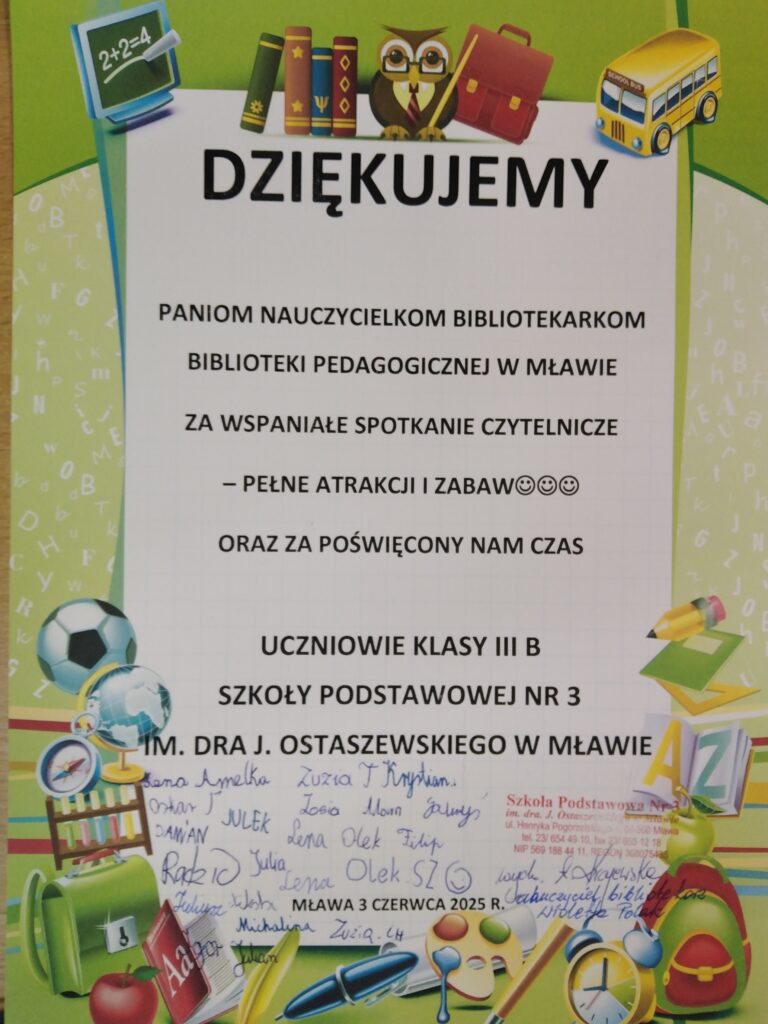 2+2=4
SCHOOL BUS
DZIĘKUJEMY
PANIOM NAUCZYCIELKOM BIBLIOTEKARKOM
BIBLIOTEKI PEDAGOGICZNEJ W MŁAWIE
ZA WSPANIAŁE SPOTKANIE CZYTELNICZE
– PEŁNE ATRAKCJI I ZABAW☺☺☺
ORAZ ZA POŚWIĘCONY NAM CZAS
UCZNIOWIE KLASY III B
SZKOŁY PODSTAWOWEJ NR 3
IM. DRA J. OSTASZEWSKIEGO W MŁAWIE
A Z
Lena Amelka Zuzia T Krystian.
Oskar T JULEK Zosia
DAMIAN Lena Olek Filip
Radzio Julia Lena Olek SZ ☺
Szkoła Podstawowa Nr 3
im. dra. J.
ul. Henryka
tel. 23/ 654 49 10, fax 23/ 655 12 18
NIP 569 188 44 11, REGON
wych.
Nauczyciel bibliotekarz
Wioletta Polak
Juliusz
MŁAWA 3 CZERWCA 2025 R.
Michalina Zuzia. CH
Igor Julian
Aa